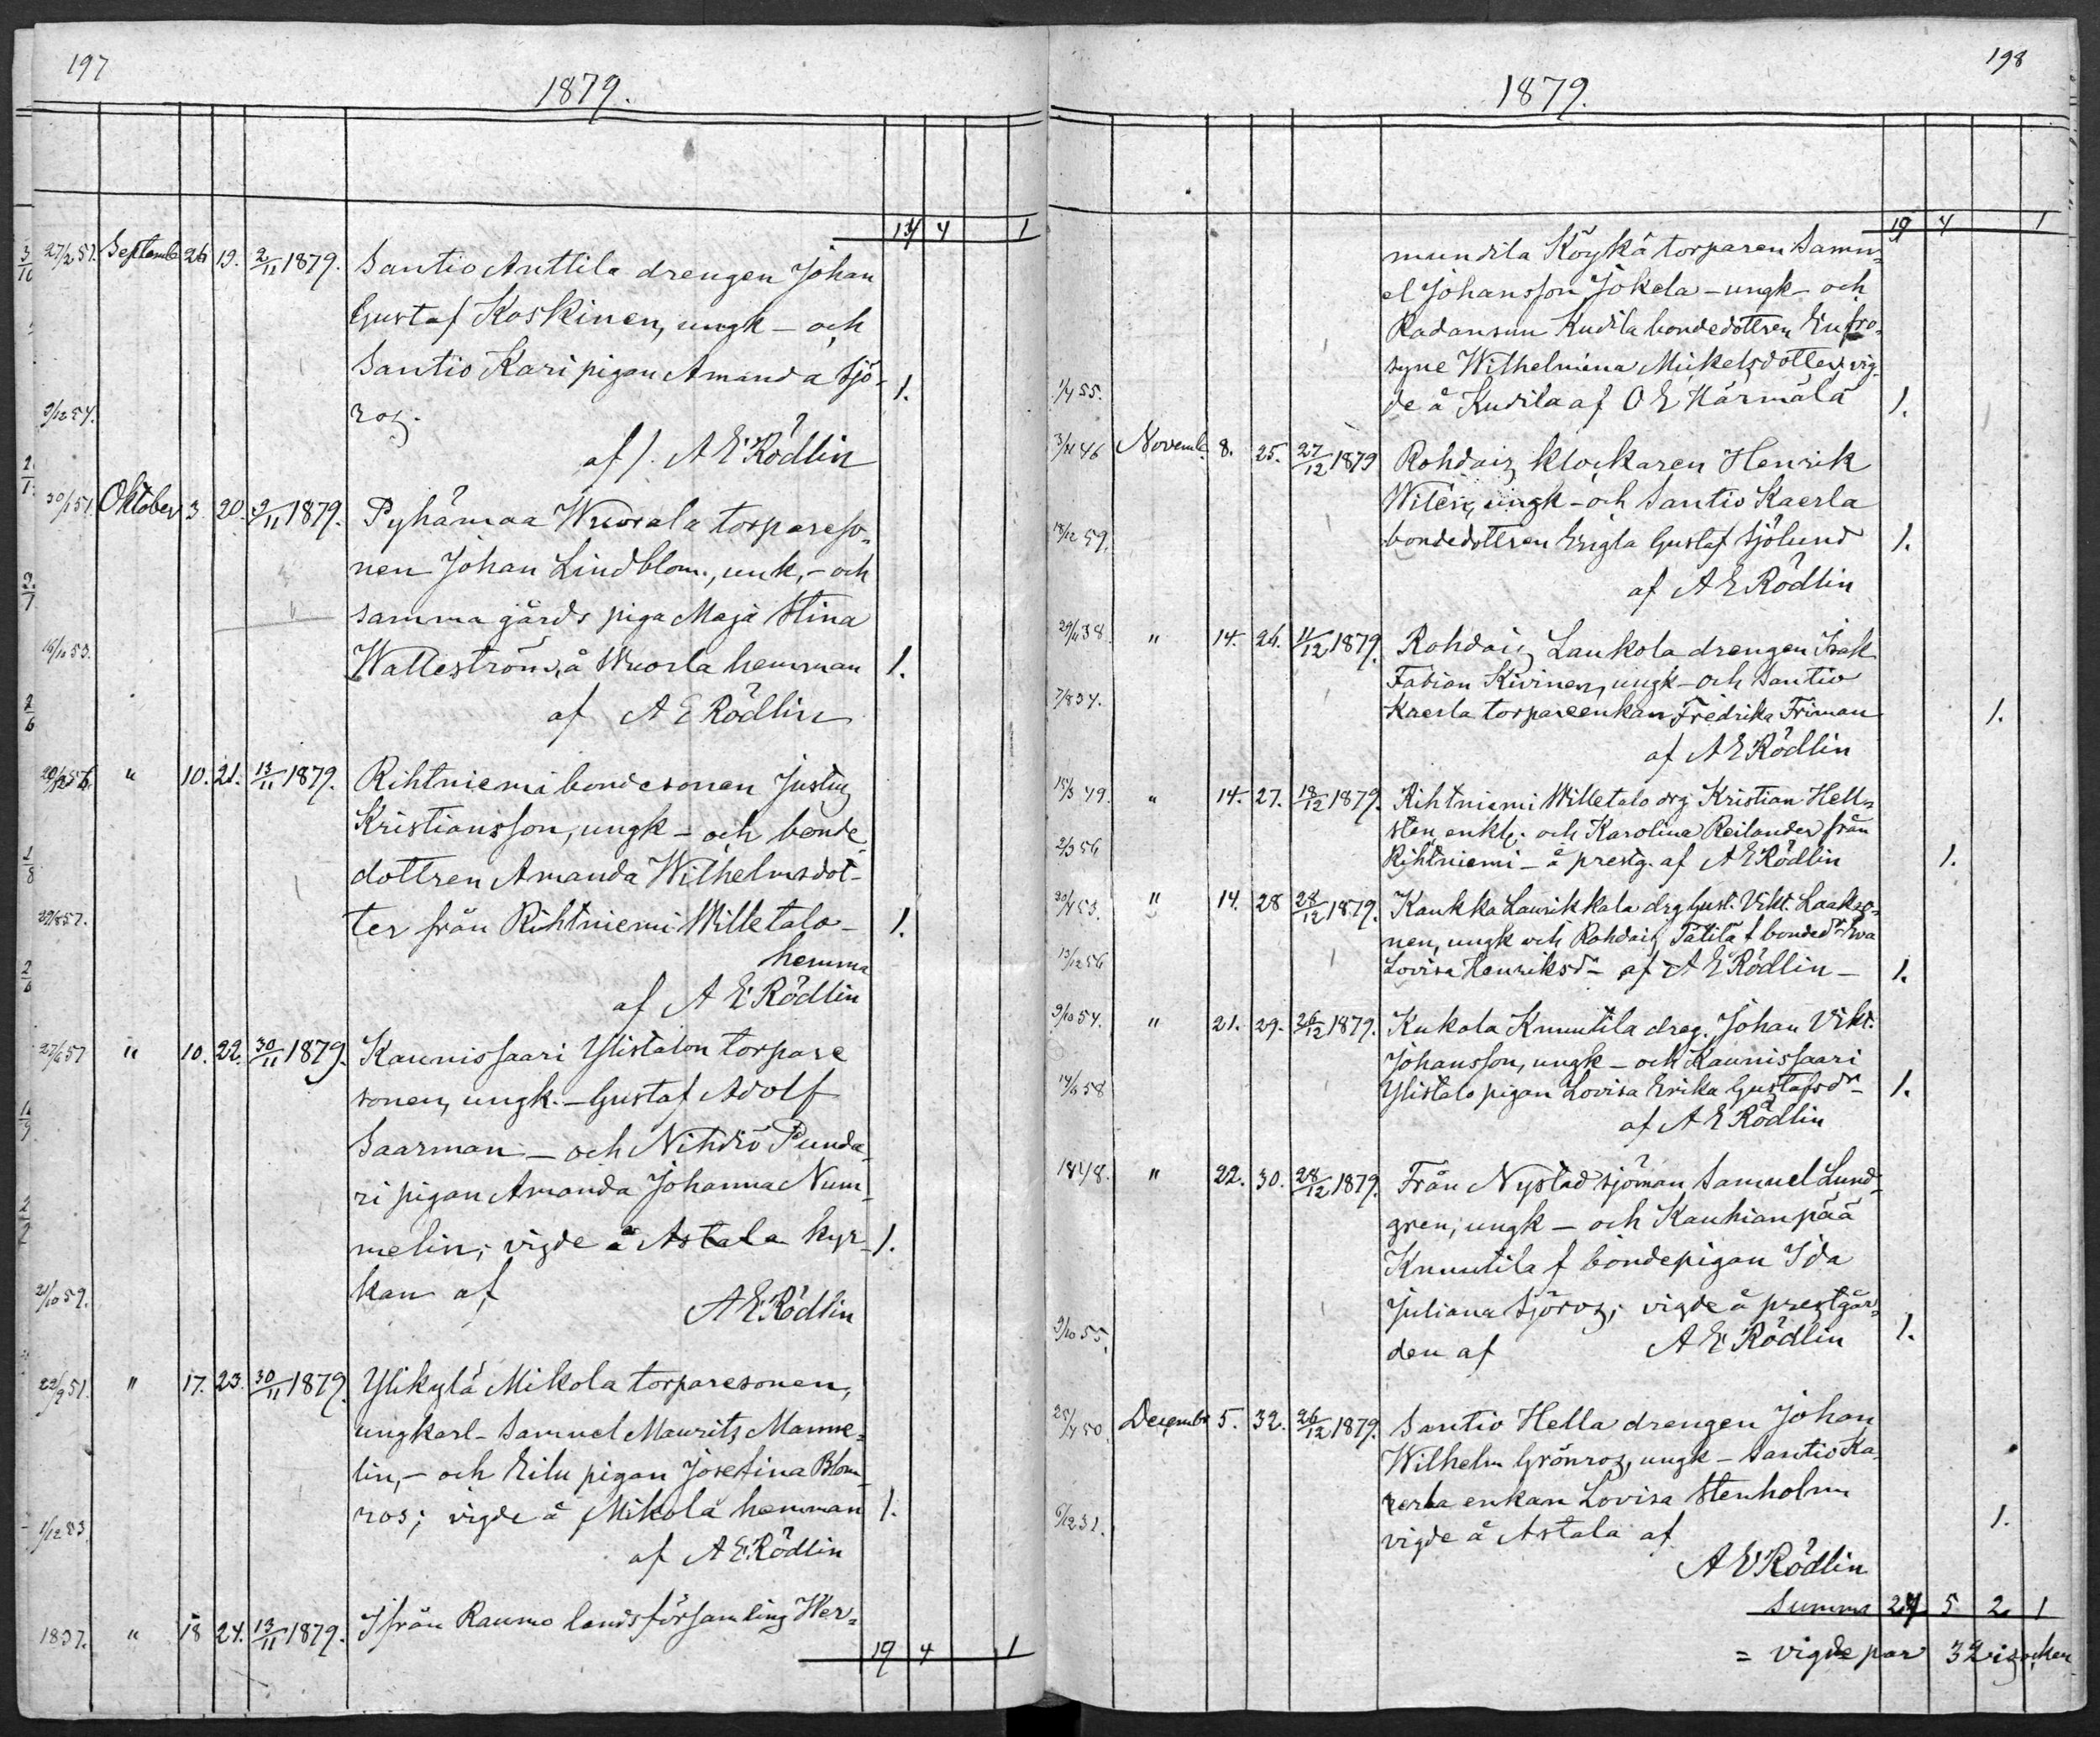 197
1879.
14 4 1
27/2 51. Septembr 26 19. 2/11 1879. Santio Anttila drengen Johan
Gustaf Koskinen, ungk – och
Santio Kari pigan Amanda Sjö-
9/12 54. ros. 1.
af A E Rödlin
30/1 51. Oktober 3. 20. 2/11 1879. Pyhämaa Wuorela torpareso-
nen Johan Lindblom, unk, – och
samma gårds piga Maja Stina
16/10 53. Walleström, å Wuorla hemman 1.
af A E Rödlin
20/12 56. " 10. 21. 13/11 1879. Rihtniemi bondesonen Justus
Kristiansson, ungk – och bonde
dottren Amanda Wilhelmsdot-
29/8 57. ter från Rihtniemi Willetalo – 1.
hemma
af A E Rödlin
27/6 57 " 10. 22. 30/11 1879. Kaunissaari Ylistalon torpare
sonen, ungk. – Gustaf Adolf
Saarman – och Nihdiö Punda-
ri pigan Amanda Johanna Num-
melin; vigde å Astala kyr- 1.
21/10 59. kan af
A E Rödlin
22/9 51. " 17. 23. 30/11 1879. Ylikylä Mikola torparesonen,
ungkarl – Samuel Maurits Manne-
lin, – och Eilu pigan Josefina Blom-
1/12 53. ros; vigde å Mikola hemman 1.
af A E Rödlin
1837. " 18 24. 13/11 1879. Ifrån Raumo landsförsamling Her-
19 4 1
198
1879.
19 4 1
mundila Köykä torparen Samu-
el Johansson Jokela – ungk – och
Radansuu Kudila bondedottren Eufro-
syne Wilhelmina Mickelsdotter; vig-
1/4 55. de å Kudila af O E Härmälä 1.
3/11 46 Novemb. 8. 25. 27/12 1879 Rohdais klockaren Henrik
Wilén, ungk – och Santio Kaerla
18/12 59. bondedottren Erigta Gustaf Sjölund 1.
af A E Rödlin
29/11 38. " 14. 26. 11/12 1879. Rohdais Laukola drengen Isak
Fabian Kivinen, ungk – och Santio
7/8 34. Kaerla torpareenkan Fredrika Friman 1.
af A E Rödlin
15/3 49. " 14. 27. 18/12 1879. Rihtniemi Willetalo drg Kristian Hell-
sten, enkl. och Karolina Reilander från
2/3 56 Rihtniemi – å prestg. af A E Rödlin 1.
30/4 53. " 14. 28 28/12 1879. Kaukka Laurikkala drg Gust. Vikt. Laakso-
nen, ungk och Rohdais Tätilä f bondedr Eva
13/12 56 Lovisa Henriksdr – af A E Rödlin – 1.
9/10 54. " 21. 29. 26/12 1879. Kukola Knuutila dreg. Johan Vikt.
Johansson, ungk – och Kaunissaari
14/6 58 Ylistalo pigan Lovisa Erika Gustafsdr – 1.
af A E Rödlin
1848. " 22. 30. 28/12 1879. Från Nystad sjöman Samuel Lund-
gren, ungk – och Kauhianpää
Knuutila f bondepigan Ida
Juliana Sjöros; vigde å prestgår-
9/10 55. den af A E Rödlin 1.
25/4 50. Decembr 5. 32. 26/12 1879. Santio Hella drengen Johan
Wilhelm Grönros, ungk – Santio Ka-
rerla enkan Lovisa Stenholm
6/12 31. vigde å Astala af 1.
A E Rödlin
Summa 24 5 2 1
= vigde par 32 i socken